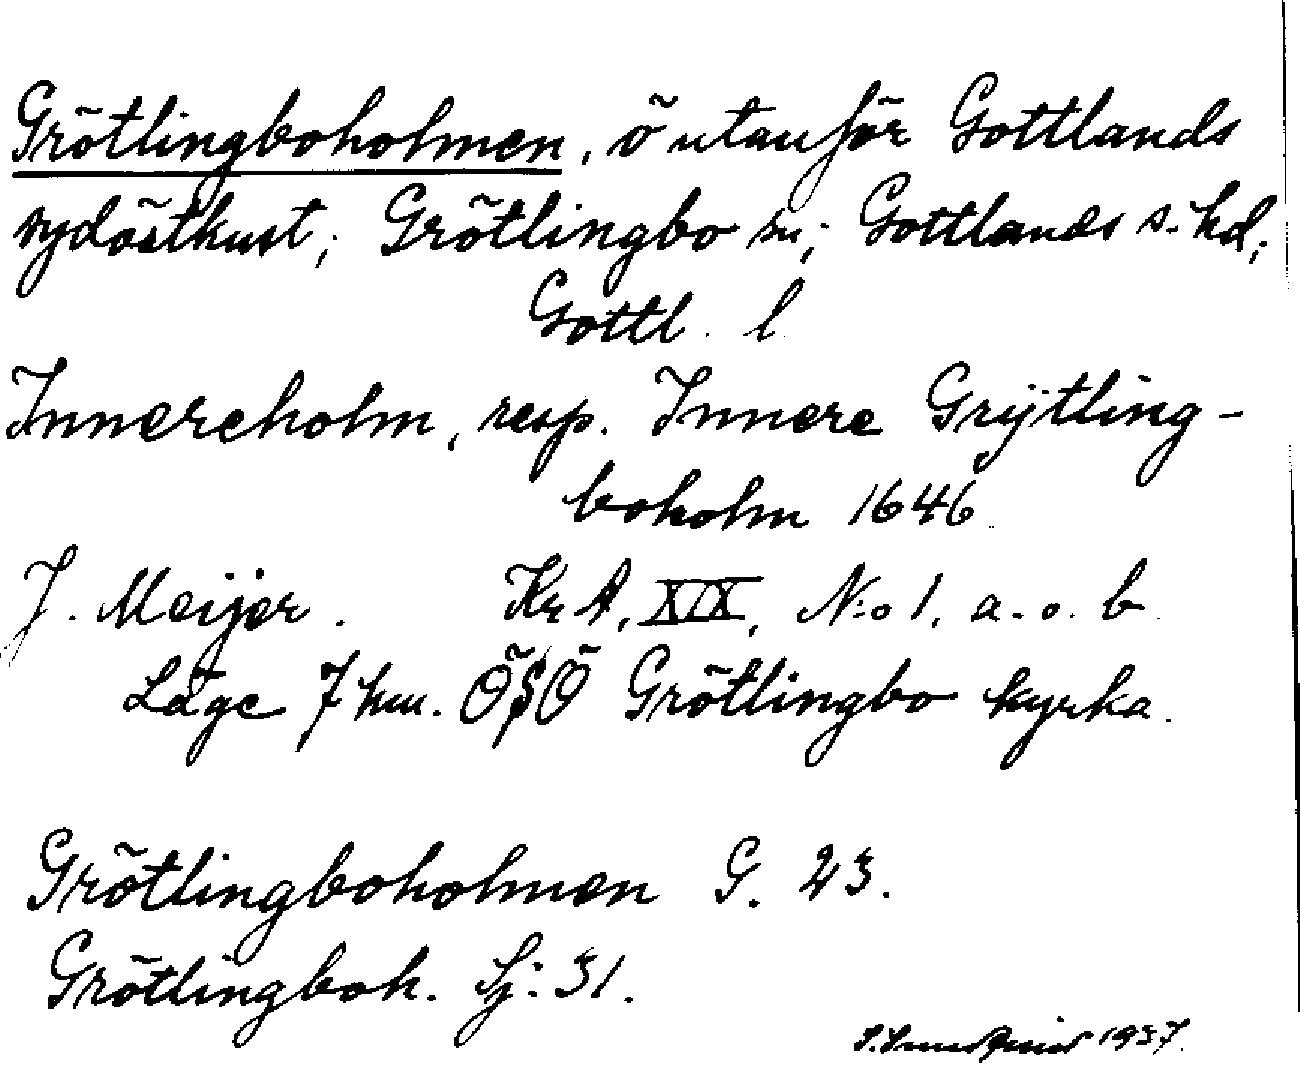 Grötlingboholmen, ö utanför Gottlands
sydöstkust; Grötlingbo sn; Gottlands s. hd;
Gottl. l
Innereholm, resp. Innere Grijtling-
boholm 1646.
J. Meijer. Kr A, XIX, N:o 1, a. o. b
Läge 7 km. ÖSÖ Grötlingbo kyrka.
Grötlingboholmen G. 23.
Grötlingboh. Sj: 31.
1937.